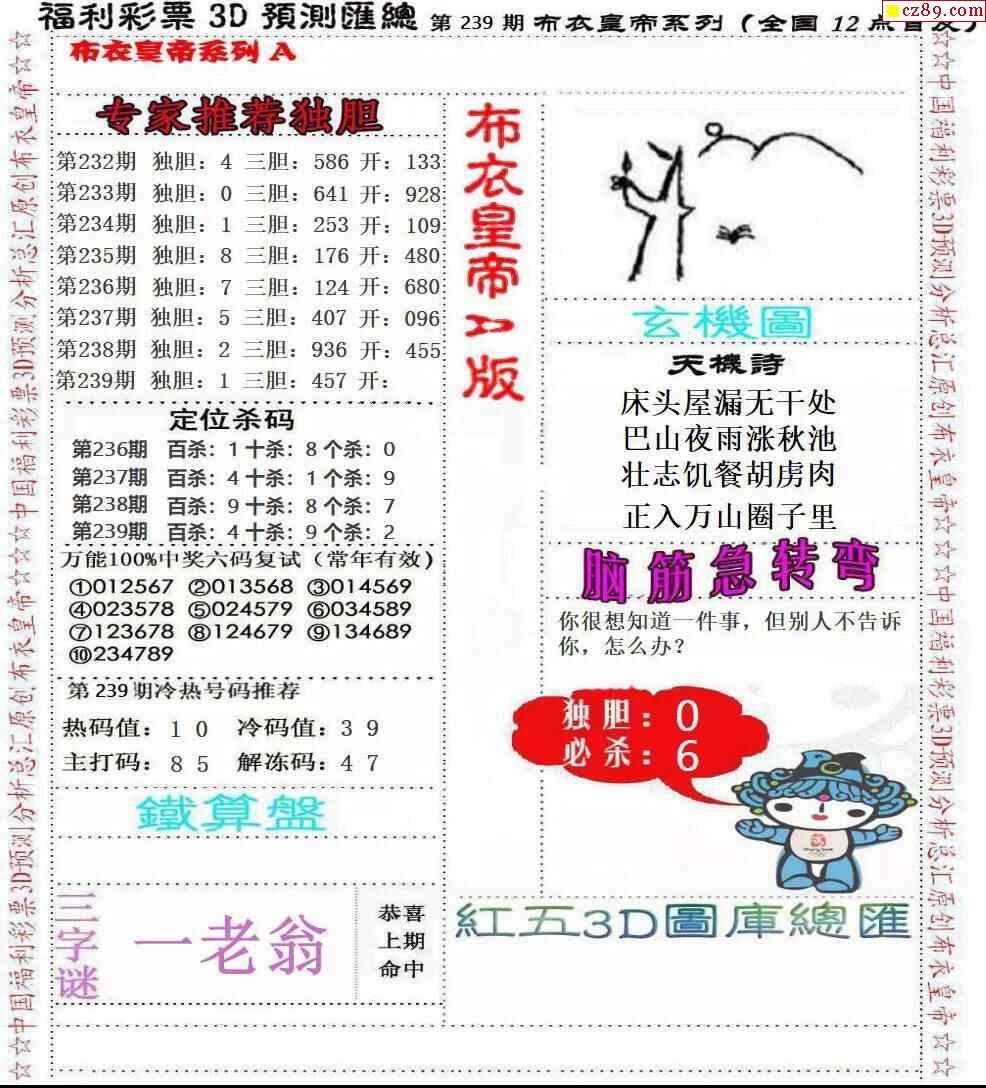 福利彩票 3D 預測匯總 第 239 期 布衣皇帝系列（全国 12 点首发）
cz89.com
布衣皇帝系列 A
专家推荐独胆
第232期 独胆：4 三胆：586 开：133
第233期 独胆：0 三胆：641 开：928
第234期 独胆：1 三胆：253 开：109
第235期 独胆：8 三胆：176 开：480
第236期 独胆：7 三胆：124 开：680
第237期 独胆：5 三胆：407 开：096
第238期 独胆：2 三胆：936 开：455
第239期 独胆：1 三胆：457 开：
定位杀码
第236期 百杀：1 十杀：8 个杀：0
第237期 百杀：4 十杀：1 个杀：9
第238期 百杀：9 十杀：8 个杀：7
第239期 百杀：4 十杀：9 个杀：2
万能100%中奖六码复试（常年有效）
①012567 ②013568 ③014569
④023578 ⑤024579 ⑥034589
⑦123678 ⑧124679 ⑨134689
⑩234789
第 239 期冷热号码推荐
热码值：1 0 冷码值：3 9
主打码：8 5 解冻码：4 7
鐵算盤
三字谜
一老翁
恭喜
上期
命中
布衣皇帝A版
玄機圖
天機詩
床头屋漏无干处
巴山夜雨涨秋池
壮志饥餐胡虏肉
正入万山圈子里
脑筋急转弯
你很想知道一件事，但别人不告诉
你，怎么办？
独胆：0
必杀：6
紅五3D圖庫總匯
☆☆中国福利彩票3D预测分析总汇原创布衣皇帝☆☆中国福利彩票3D预测分析总汇原创布衣皇帝☆☆
☆☆中国福利彩票3D预测分析总汇原创布衣皇帝☆☆中国福利彩票3D预测分析总汇原创布衣皇帝☆☆